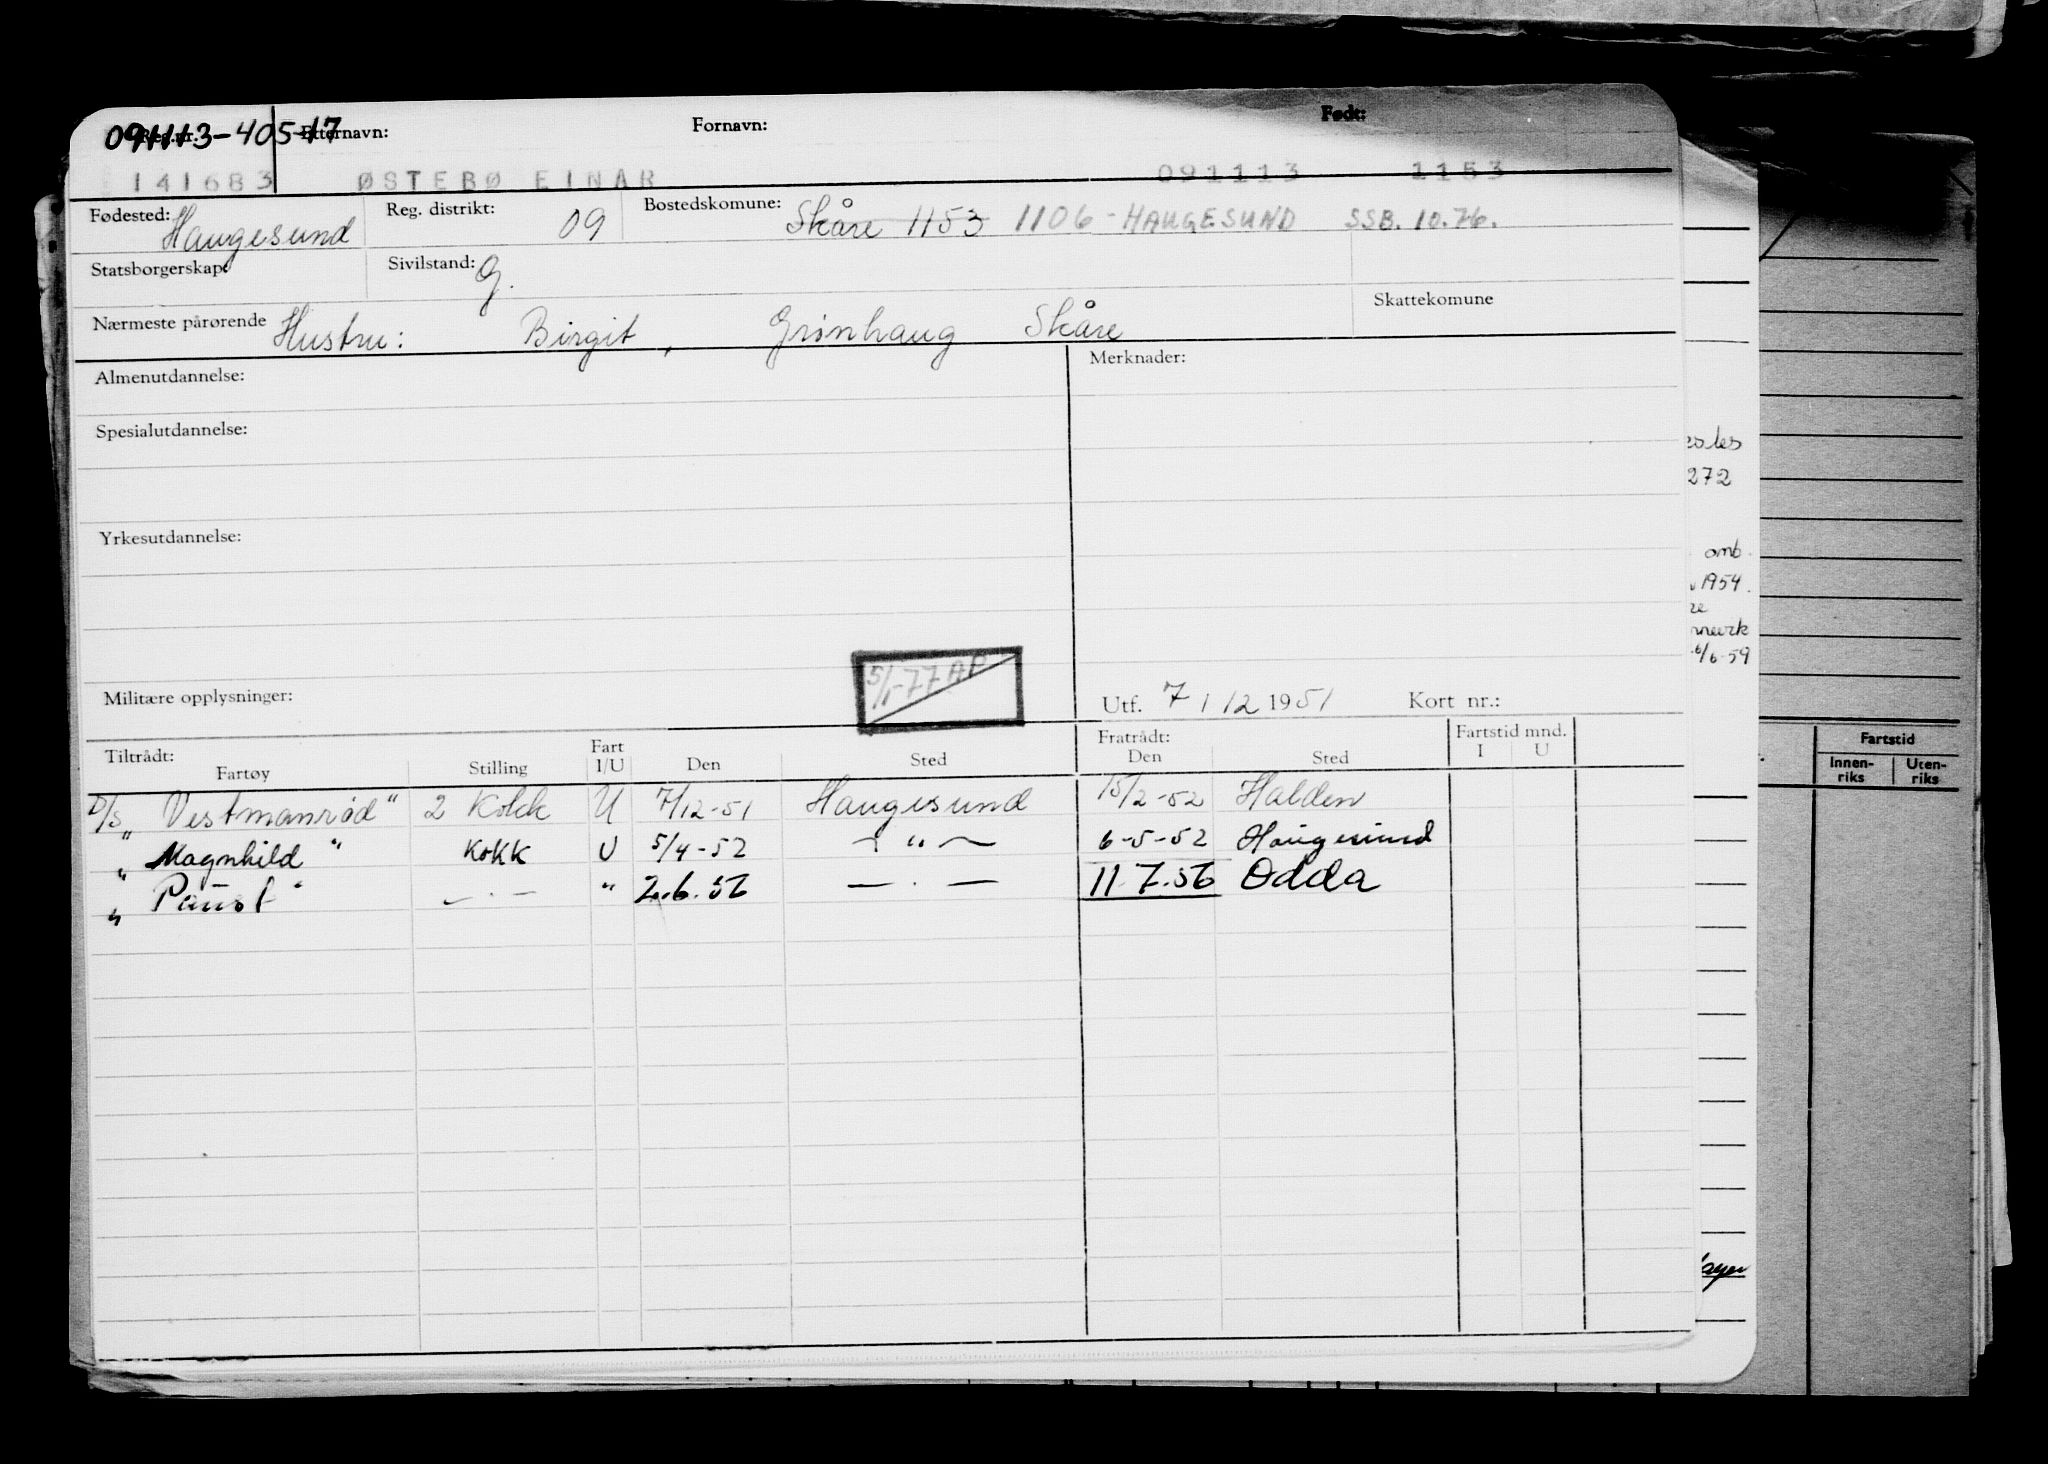 Reg.nr. Etternavn: Fornavn: Født:
091113-405-17
141683 ØSTEBØ EINAR 091113 1153
Fødested: Haugesund Reg. distrikt: 09 Bostedskomune: Skåre 1153 1106-HAUGESUND SSB. 10.76.
Statsborgerskap: Sivilstand: G.
Nærmeste pårørende Hustru: Birgit, Grinhaug Skåre Skattekomune
Almenutdannelse: Merknader:
Spesialutdannelse:
Yrkesutdannelse:
5/1-77 AP
Militære opplysninger: Utf. 7/12 1951 Kort nr.:
Tiltrådt: Fart Fratrådt: Fartstid mnd.
Fartøy Stilling I/U Den Sted Den Sted I U
D/S „Vestmanrød" 2 Kokk U 7/12-51 Haugesund 15/2-52 Halden
„ Magnhild " Kokk U 5/4-52 — " — 6-5-52 Haugesund
„ Paust " — . — " 2.6.56 — . — 11.7.56 Odda
272
omb.
1954.
6/6-59
Fartstid
Innen- Uten-
riks riks